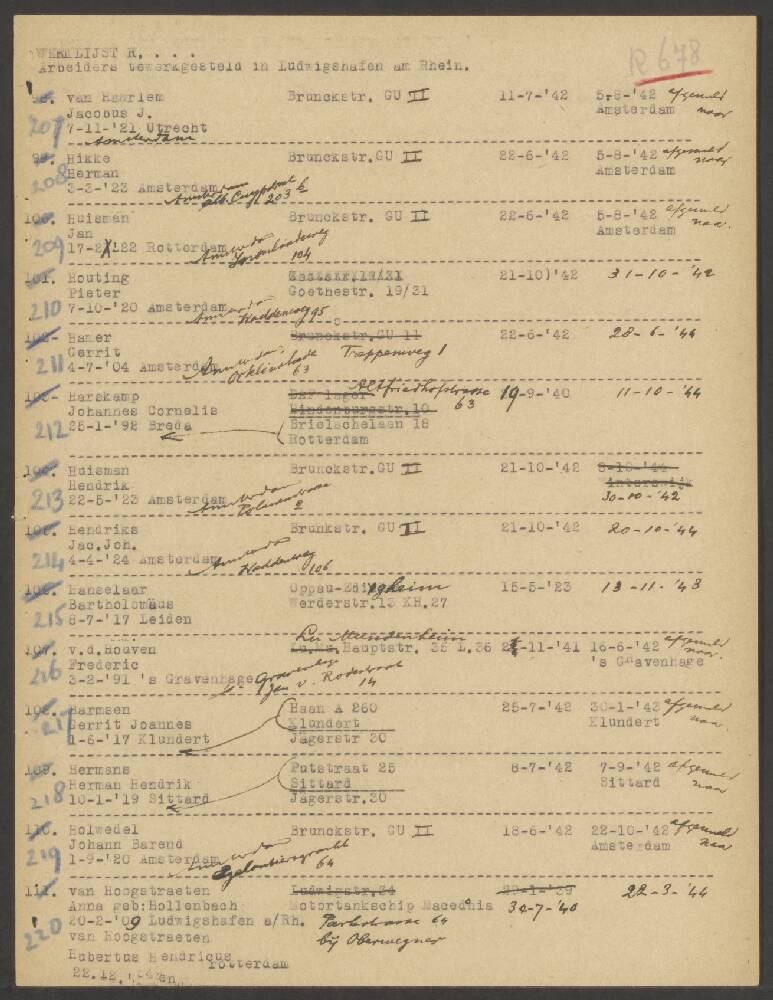 WERKLIJST H. . . .
Arbeiders tewerkgesteld in Ludwigshafen am Rhein.
R 678
207 van Haarlem Brunckstr. GU II 11-7-'42 5-8-'42 afgemeld
Jacobus J. Amsterdam naar
7-11-'21 Utrecht
Amsterdam
99. Hikke Brunckstr.GU II 22-6-'42 5-8-'42 afgemeld
208 Herman Amsterdam naar
3-3-'23 Amsterdam
Alb. Cuypstraat 203 h
100. Huisman Brunckstr. GU II 22-6-'42 5-8-'42 afgemeld
Jan Amsterdam naar
209 17- XI-22 Rotterdam Amsterdam
104
101. Houting 21-10)'42 31-10-'42
Pieter Goethestr. 19/31
210 7-10-'20 Amsterdam Amsterdam
Waddenweg 95
102. Hamer Brunckstr.GU 11 22-6-'42 28-6-'44
Gerrit Treppenweg 1
211 4-7-'04 Amsterdam Amsterdam
63
103. Harskamp DAF lager Altfriedhofstrasse 63 19-9-'40 11-10-'44
Johannes Cornelis Hindenburgstr.10
212 25-1-'98 Breda Brielschelaan 18
Rotterdam
104. Huisman Brunckstr.GU II 21-10-'42 8-10-'44
Hendrik Winterswijk
213 22-5-'23 Amsterdam Amsterdam 30-10-'42
2
105. Hendriks Brunkstr. GU II 21-10-'42 20-10-'44
Jac.Joh.
214 4-4-'24 Amsterdam Amsterdam
Waddenweg 106
106. Hanselaar Oppau-Edigheim 15-5-'23 13-11-'43
Bartholomäus Werderstr.13 KH.27
215 8-7-'17 Leiden
107. v.d.Houven Lu.Mu. Hauptstr. 35 L.36 Lu Mundenheim 2-11-'41 16-6-'42 afgemeld naar
Frederic 's Gravenhage
216 3-2-'91 's Gravenhage 's Gravenhage
14
108. Harmsen Haan A 260 25-7-'42 30-1-'43 afgemeld
217 Gerrit Joannes Klundert Klundert naar
1-6-'17 Klundert Jägerstr 30
109. Hermans Putstraat 25 8-7-'42 7-9-'42 afgemeld
Herman Hendrik Sittard Sittard naar
218 10-1-'19 Sittard Jägerstr.30
110. Holwedel Brunckstr. GU II 18-6-'42 22-10-'42 afgemeld
Johann Barend Amsterdam naar
219 1-9-'20 Amsterdam Amsterdam
Egelantiersgracht 64
111. van Hoogstraeten Ludwigstr.34 22-3-'44
Anna geb:Hollenbach Motortankschip Macedonia 30-7-'40
220 20-2-'09 Ludwigshafen a/Rh. Parkstrasse 64
van Hoogstraeten bij Oberwegner
Hubertus Hendricus
22.12. Rotterdam